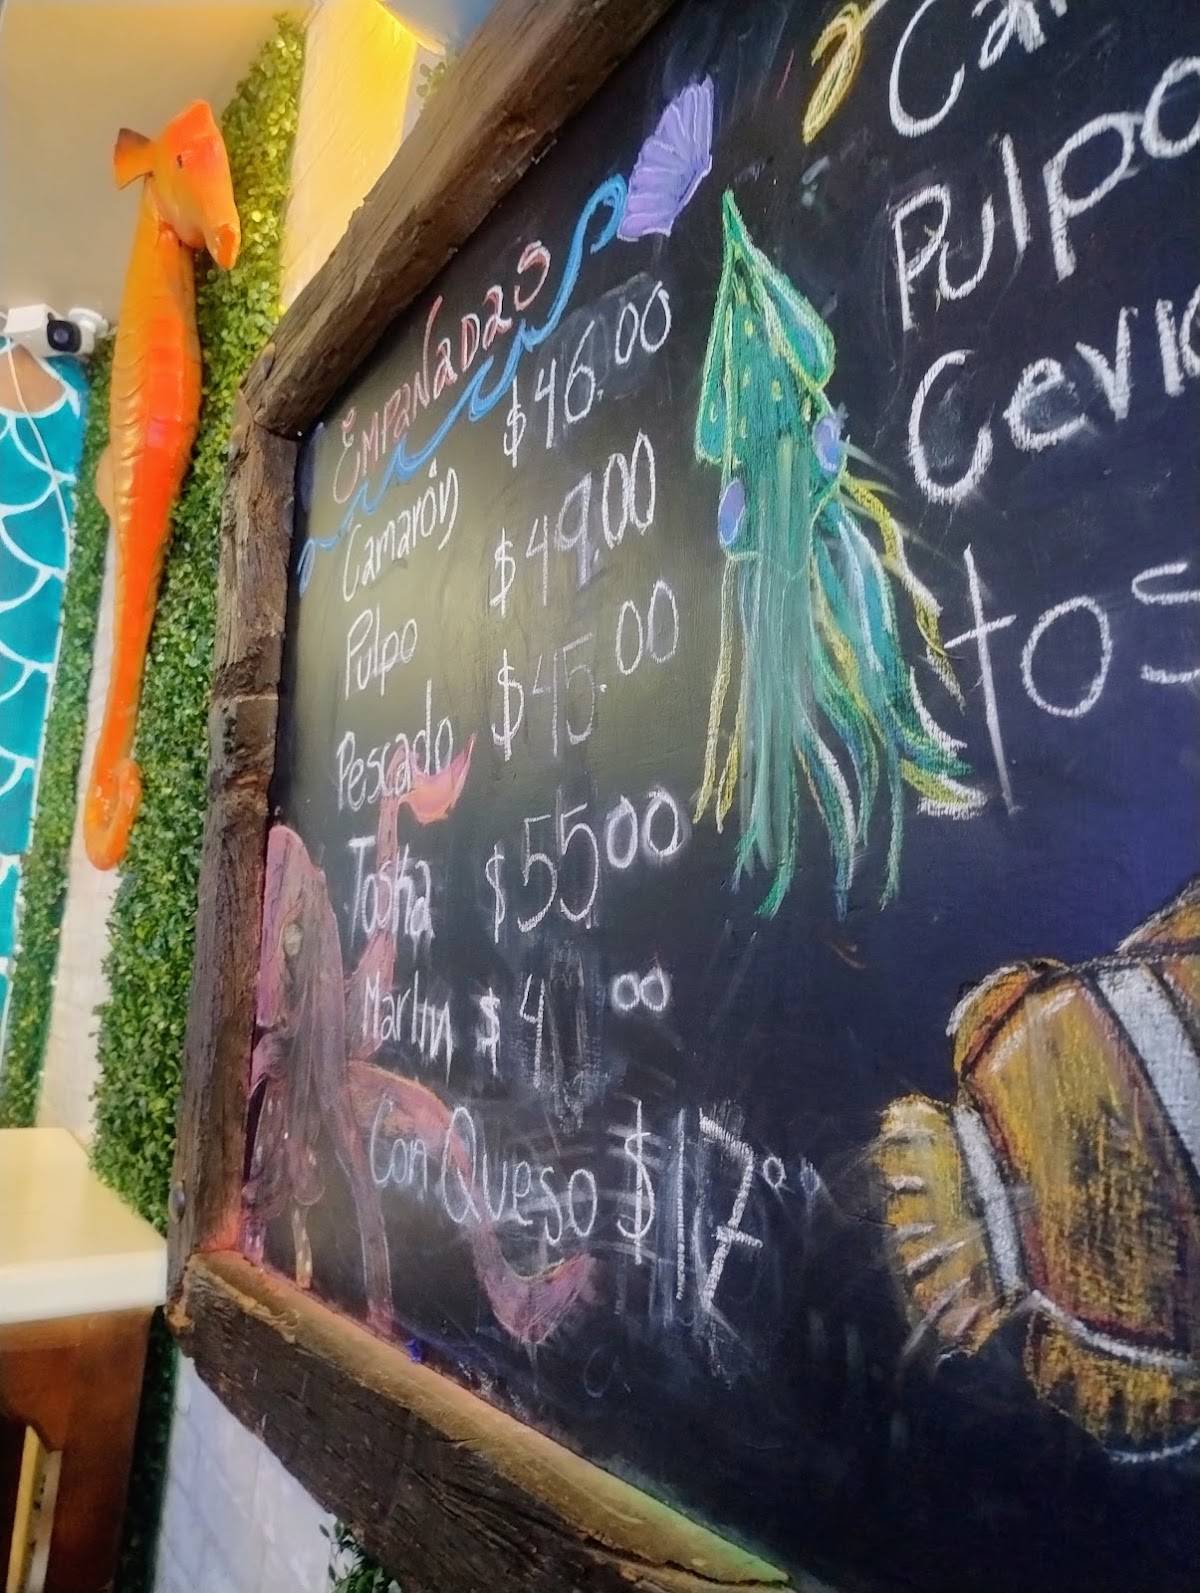 EMPANADAS
Camarón $46.00
Pulpo $49.00
Pescado $45.00
Toska $55.00
Marlin $4 .00
Con Queso $17.00
Pulpo
tos